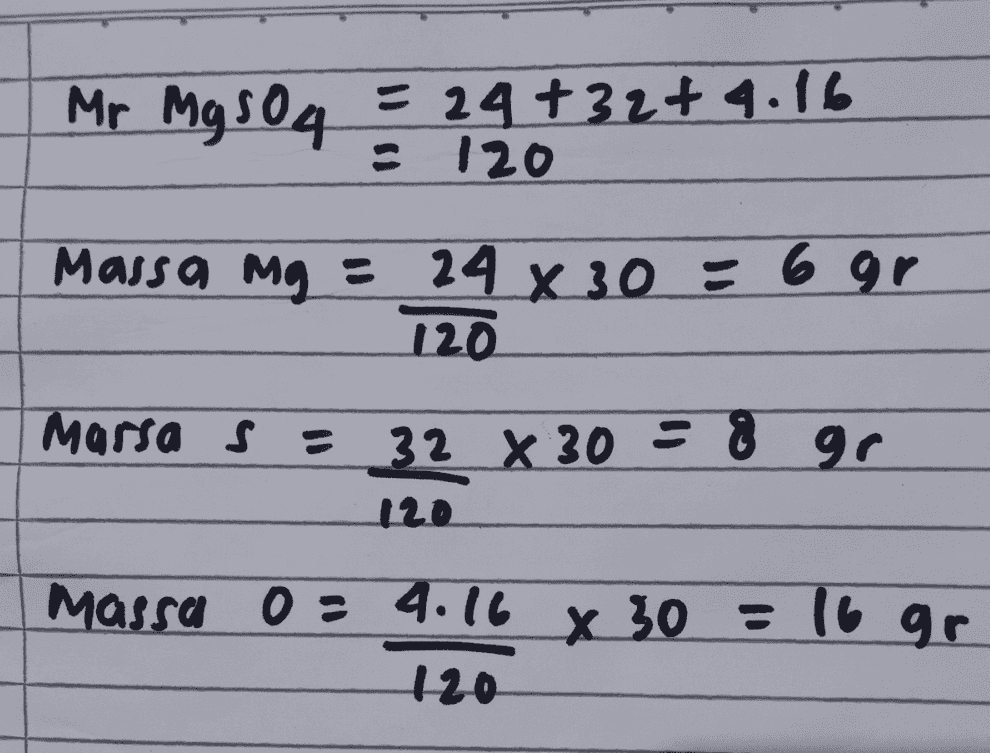 Mr MgSO4 = 24 + 32 + 4.16
= 120
Massa Mg = 24/120 x 30 = 6 gr
Massa S = 32/120 x 30 = 8 gr
Massa O = 4.16/120 x 30 = 16 gr